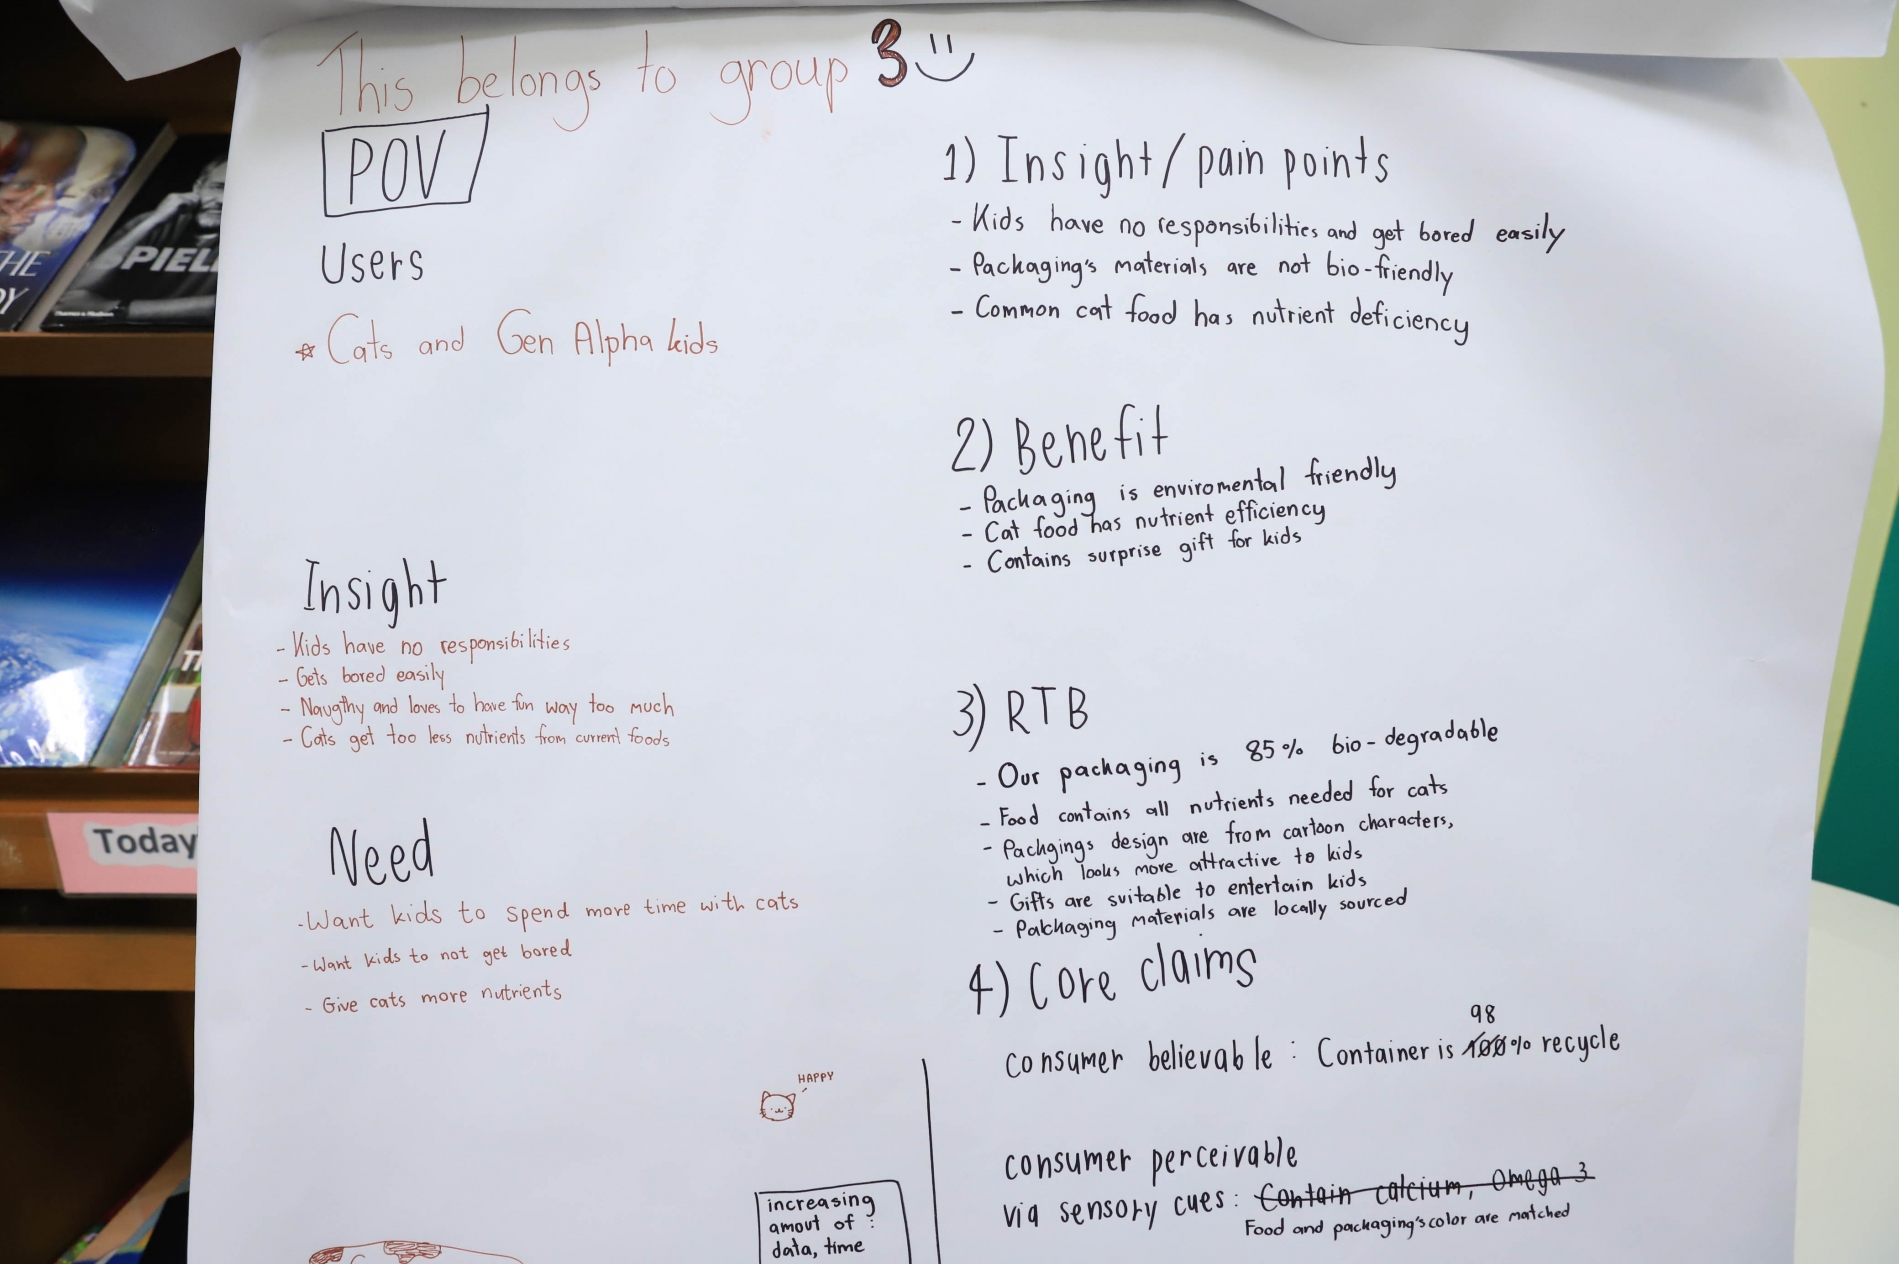 This belongs to group 3
POV
Users
Cats and Gen Alpha kids
Insight
- Kids have no responsibilities
- Gets bored easily
- Naugthy and loves to have fun way too much
- Cats get too less nutrients from current foods
Need
- Want kids to spend more time with cats
- Want kids to not get bored
- Give cats more nutrients
HAPPY
increasing
amout of :
data, time
1) Insight/pain points
- Kids have no responsibilities and get bored easily
- Packaging's materials are not bio-friendly
- Common cat food has nutrient deficiency
2) Benefit
- Packaging is enviromental friendly
- Cat food has nutrient efficiency
- Contains surprise gift for kids
3) RTB
- Our packaging is 85% bio-degradable
- Food contains all nutrients needed for cats
- Packgings design are from cartoon characters,
which looks more attractive to kids
- Gifts are suitable to entertain kids
- Patchaging materials are locally sourced
4) Core claims
98
consumer believable : Container is 100% recycle
consumer perceivable
via sensory cues: Contain calcium, Omega 3
Food and packaging's color are matched
PIEL
HE
Thames & Hudson
Today